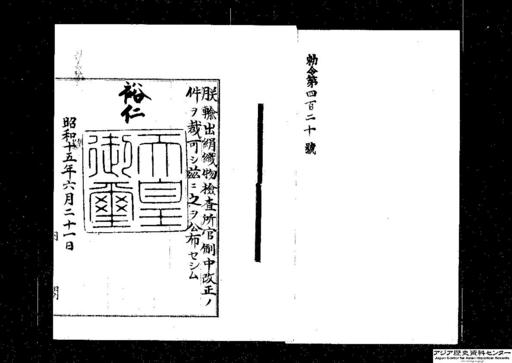 勅令第四百二十號
朕輸出絹織物檢査所官制中改正ノ
件ヲ裁可シ茲ニ之ヲ公布セシム
裕仁
天皇
御璽
昭和十五年六月二十一日
アジア歴史資料センター
Japan Center for Asian Historical Records